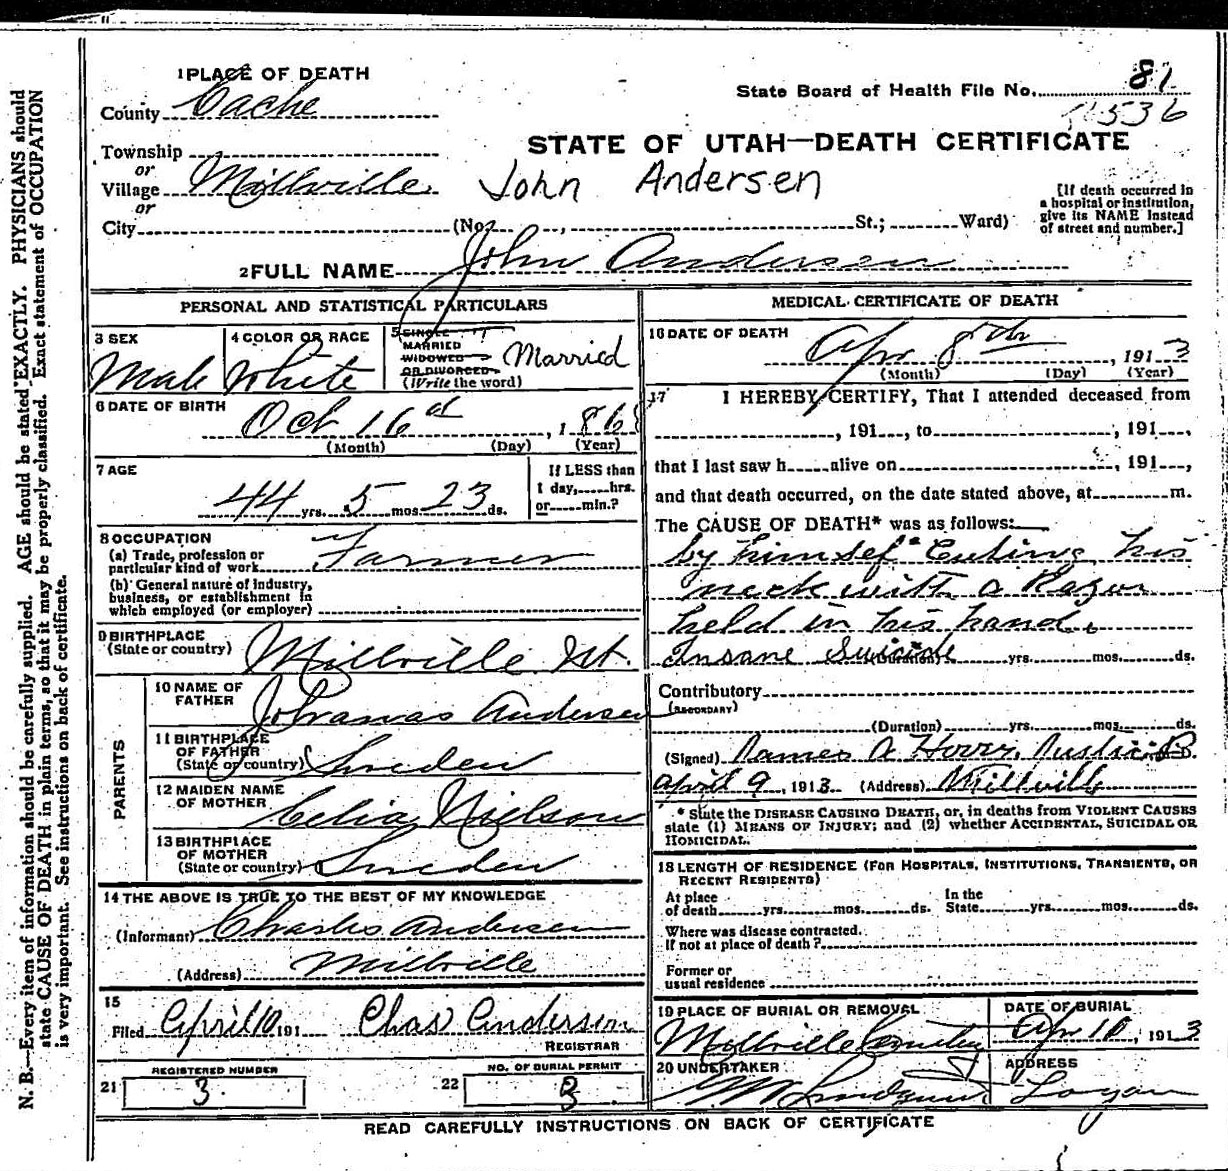 1 PLACE OF DEATH
County Cache
State Board of Health File No. 81
536
STATE OF UTAH—DEATH CERTIFICATE
Township
or
Village Millville
John Andersen
or
City (No. , St.; Ward)
[If death occurred in
a hospital or institution,
give its NAME instead
of street and number.]
2 FULL NAME John Andersen
PERSONAL AND STATISTICAL PARTICULARS
3 SEX
Male
4 COLOR OR RACE
White
5 SINGLE
MARRIED
WIDOWED
OR DIVORCED
(Write the word)
Married
6 DATE OF BIRTH
Oct 16 , 1868
(Month) (Day) (Year)
7 AGE
44 yrs. 5 mos. 23 ds.
If LESS than
1 day, hrs.
or min.?
8 OCCUPATION
(a) Trade, profession or
particular kind of work Farmer
(b) General nature of industry,
business, or establishment in
which employed (or employer)
9 BIRTHPLACE
(State or country) Millville Ut.
PARENTS
10 NAME OF
FATHER
Andersen
11 BIRTHPLACE
OF FATHER
(State or country) Sweden
12 MAIDEN NAME
OF MOTHER
Celia Nielson
13 BIRTHPLACE
OF MOTHER
(State or country) Sweden
14 THE ABOVE IS TRUE TO THE BEST OF MY KNOWLEDGE
(Informant) Charles Andersen
(Address) Millville
15
Filed April 10 191 Chas Anderson
REGISTRAR
REGISTERED NUMBER
21 3
NO. OF BURIAL PERMIT
22 3
MEDICAL CERTIFICATE OF DEATH
16 DATE OF DEATH
Apr 8th , 1913
(Month) (Day) (Year)
17 I HEREBY CERTIFY, That I attended deceased from
, 191 , to , 191 ,
that I last saw h alive on , 191 ,
and that death occurred, on the date stated above, at m.
The CAUSE OF DEATH* was as follows:
by himself Cuting his
neck with a Razor
held in his hand.
Insane Suicide (Duration) yrs. mos. ds.
Contributory
(SECONDARY)
(Duration) yrs. mos. ds.
(Signed) James A
April 9 , 1913 (Address) Millville
* State the DISEASE CAUSING DEATH, or, in deaths from VIOLENT CAUSES
state (1) MEANS OF INJURY; and (2) whether ACCIDENTAL, SUICIDAL OR
HOMICIDAL.
18 LENGTH OF RESIDENCE (FOR HOSPITALS, INSTITUTIONS, TRANSIENTS, OR
RECENT RESIDENTS)
At place
of death yrs. mos. ds.
In the
State yrs. mos. ds.
Where was disease contracted.
If not at place of death?
Former or
usual residence
19 PLACE OF BURIAL OR REMOVAL
Millville Cemetery
DATE OF BURIAL
Apr 10 , 1913
20 UNDERTAKER
ADDRESS
Logan
READ CAREFULLY INSTRUCTIONS ON BACK OF CERTIFICATE
N. B.—Every item of information should be carefully supplied. AGE should be stated EXACTLY. PHYSICIANS should
state CAUSE OF DEATH in plain terms, so that it may be properly classified. Exact statement of OCCUPATION
is very important. See instructions on back of certificate.